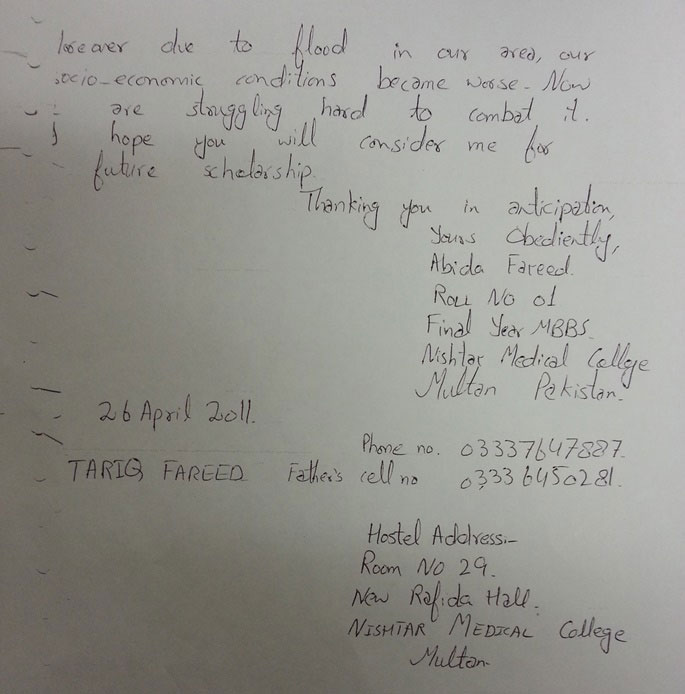 However due to flood in our area, our
socio-economic conditions became worse. Now
are struggling hard to combat it.
I hope you will consider me for
future scholarship.
Thanking you in anticipation,
Yours Obediently,
Abida Fareed.
Roll No 01
Final Year MBBS.
Nishtar Medical College
Multan Pakistan.
26 April 2011.
Phone no. 03337647887.
TARIQ FAREED Father's cell no 03336450281.
Hostel Address:-
Room No 29.
New Rafida Hall.
NISHTAR MEDICAL College
Multan.